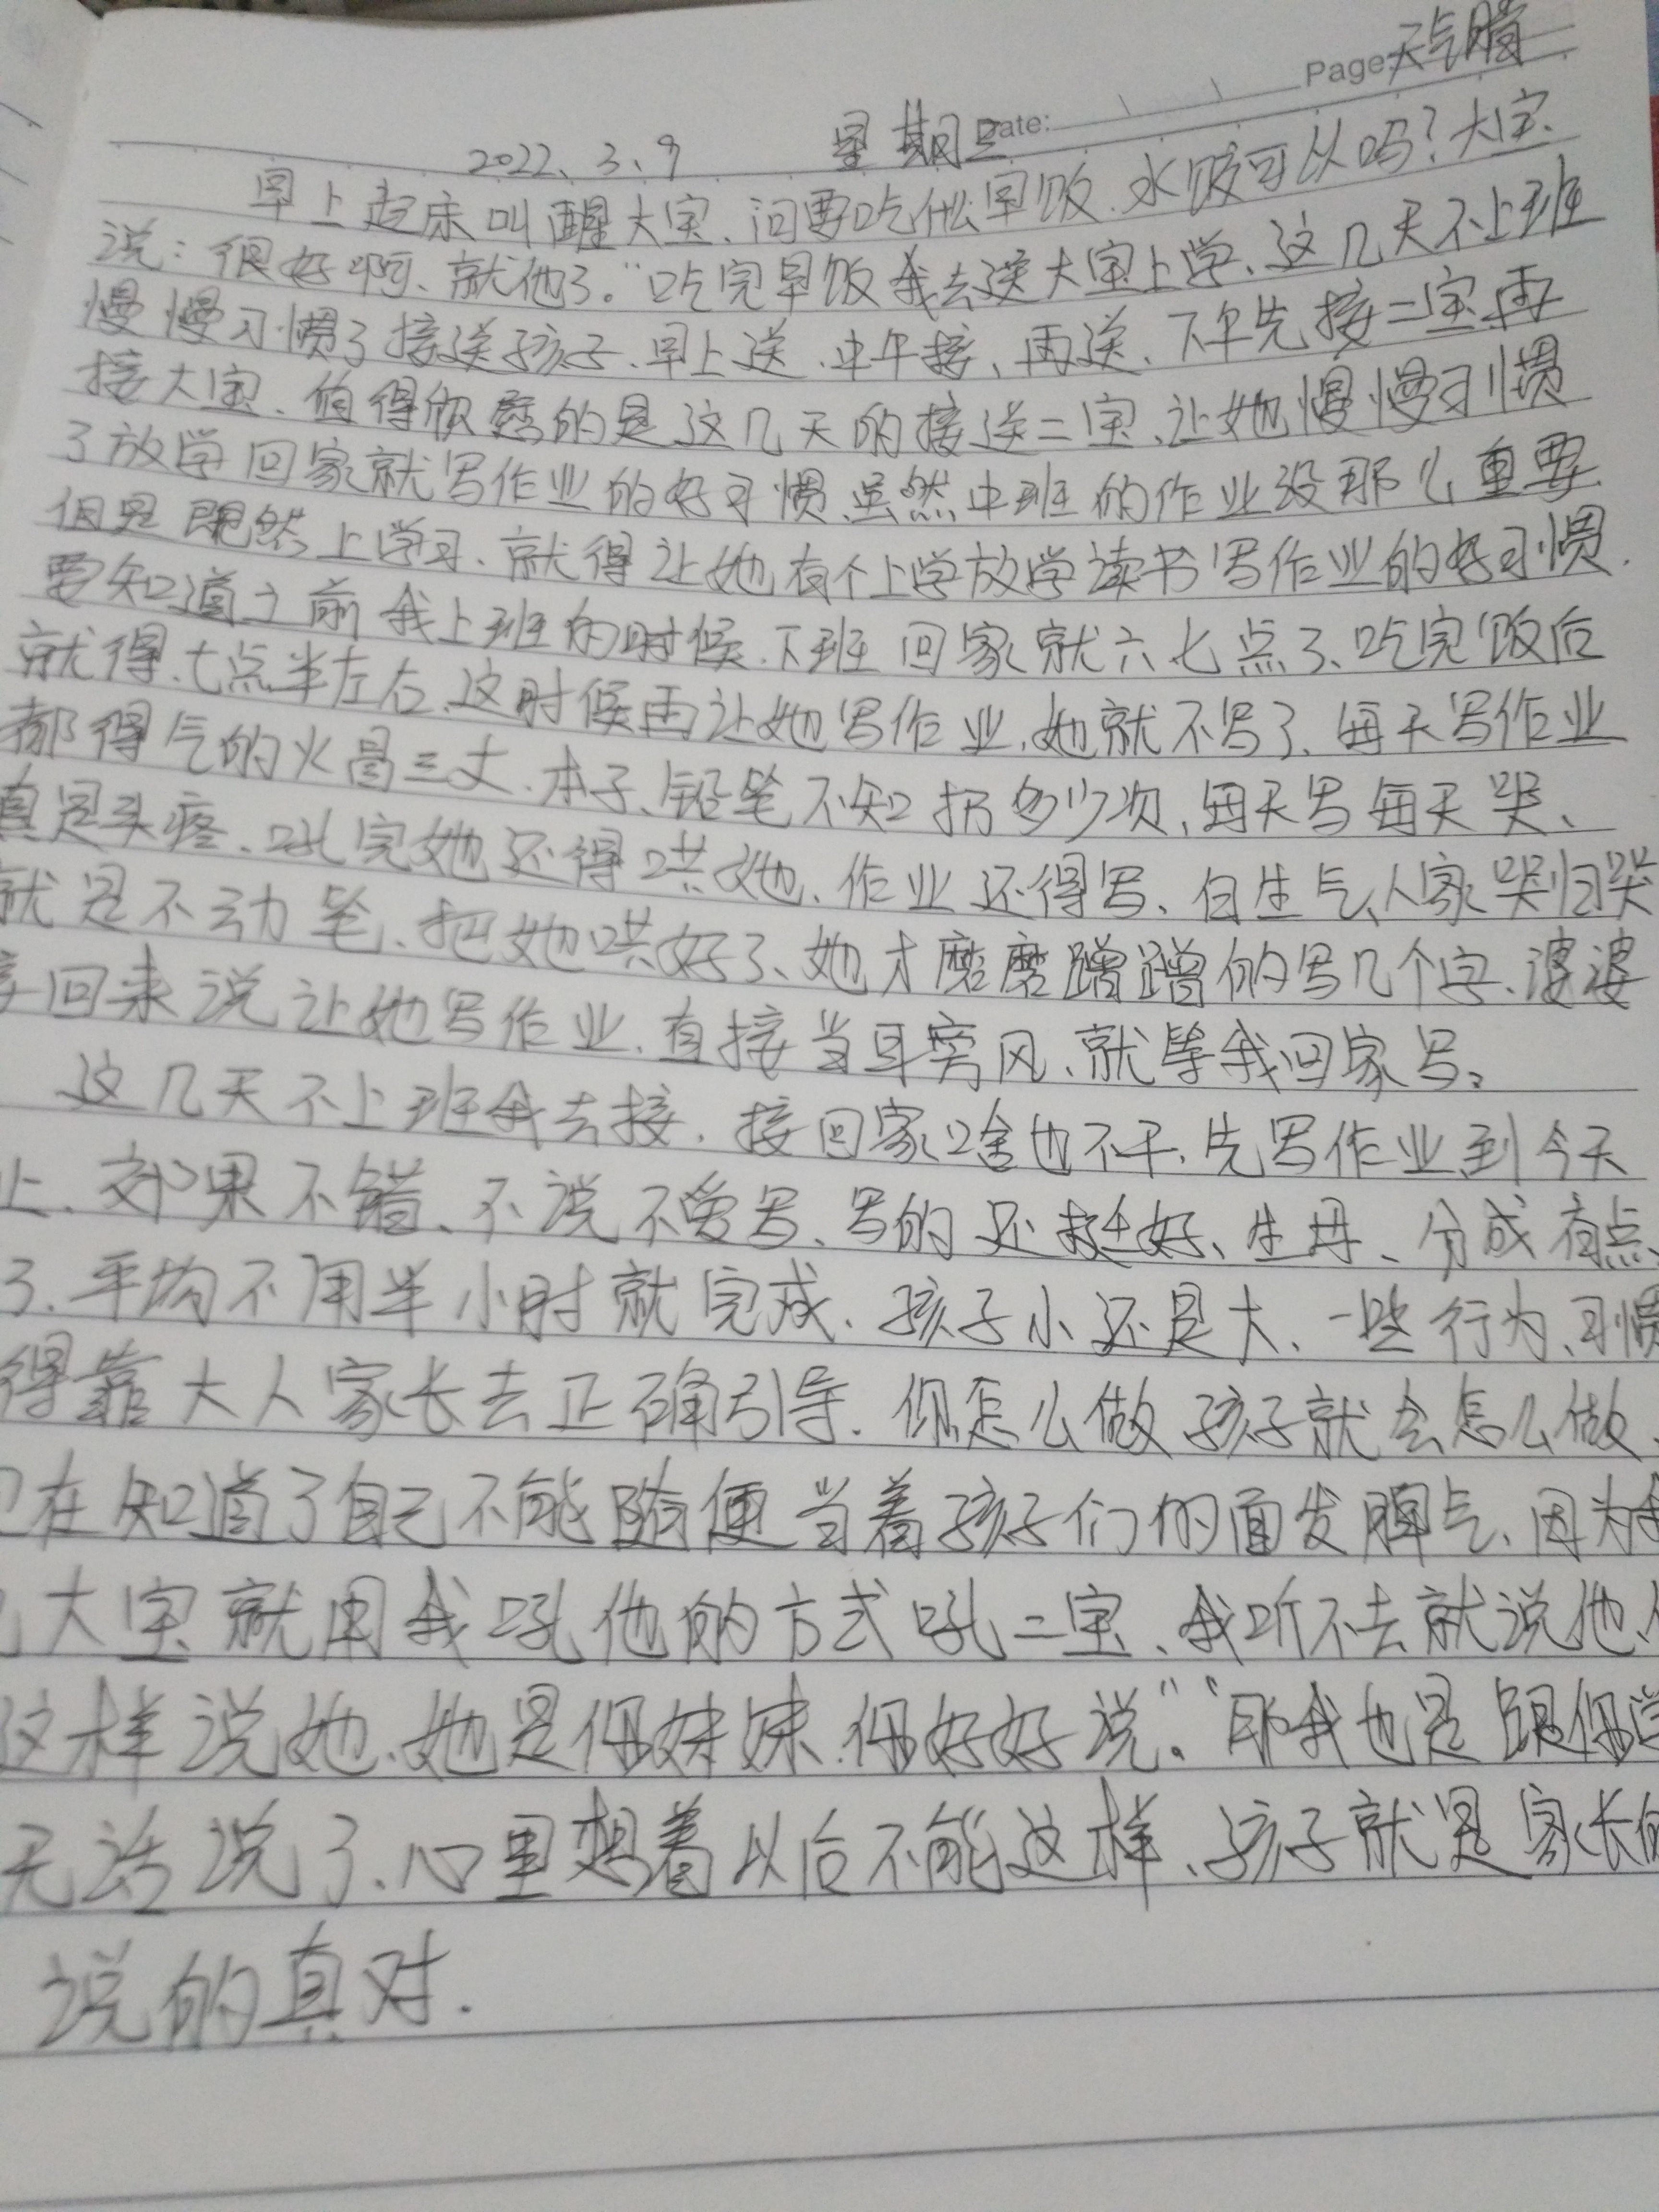 Page: 天气晴
2022、3、9 星期三 Date:
早上起床叫醒大宝、问要吃什么早饭、水饺可以吗？大宝
说：很好啊、就他了。“吃完早饭我去送大宝上学、这几天不上班
慢慢习惯了接送孩子、早上送、中午接、再送、下午先接二宝再
接大宝、值得欣慰的是这几天的接送二宝、让她慢慢习惯
了放学回家就写作业的好习惯、虽然中班的作业没那么重要
但是既然上学习、就得让她有个上学放学读书写作业的好习惯.
要知道之前我上班的时候、下班回家就六七点了、吃完饭后
就得七点半左右、这时候再让她写作业、她就不写了、每天写作业
都得气的火冒三丈、本子、铅笔不知扔多少次、每天写每天哭、
真是头疼、吼完她还得哄她、作业还得写、白生气、人家哭归哭
就是不动笔、把她哄好了、她才磨磨蹭蹭的写几个字、婆婆
接回来说让她写作业、直接当耳旁风、就等我回家写。
这几天不上班我去接、接回家啥也不干、先写作业到今天
止、效果不错、不说不爱写、写的还挺好、生母、分成有点
了、平均不用半小时就完成、孩子小还是大、一些行为、习惯
得靠大人家长去正确引导、你怎么做孩子就会怎么做、
在知道了自己不能随便当着孩子们的面发脾气、因为
大宝就用我吼他的方式吼二宝、我听不去就说他、
这样说她、她是你妹妹、你好好说。”“那我也是跟你学
无话说了、心里想着以后不能这样、孩子就是家长的
说的真对.